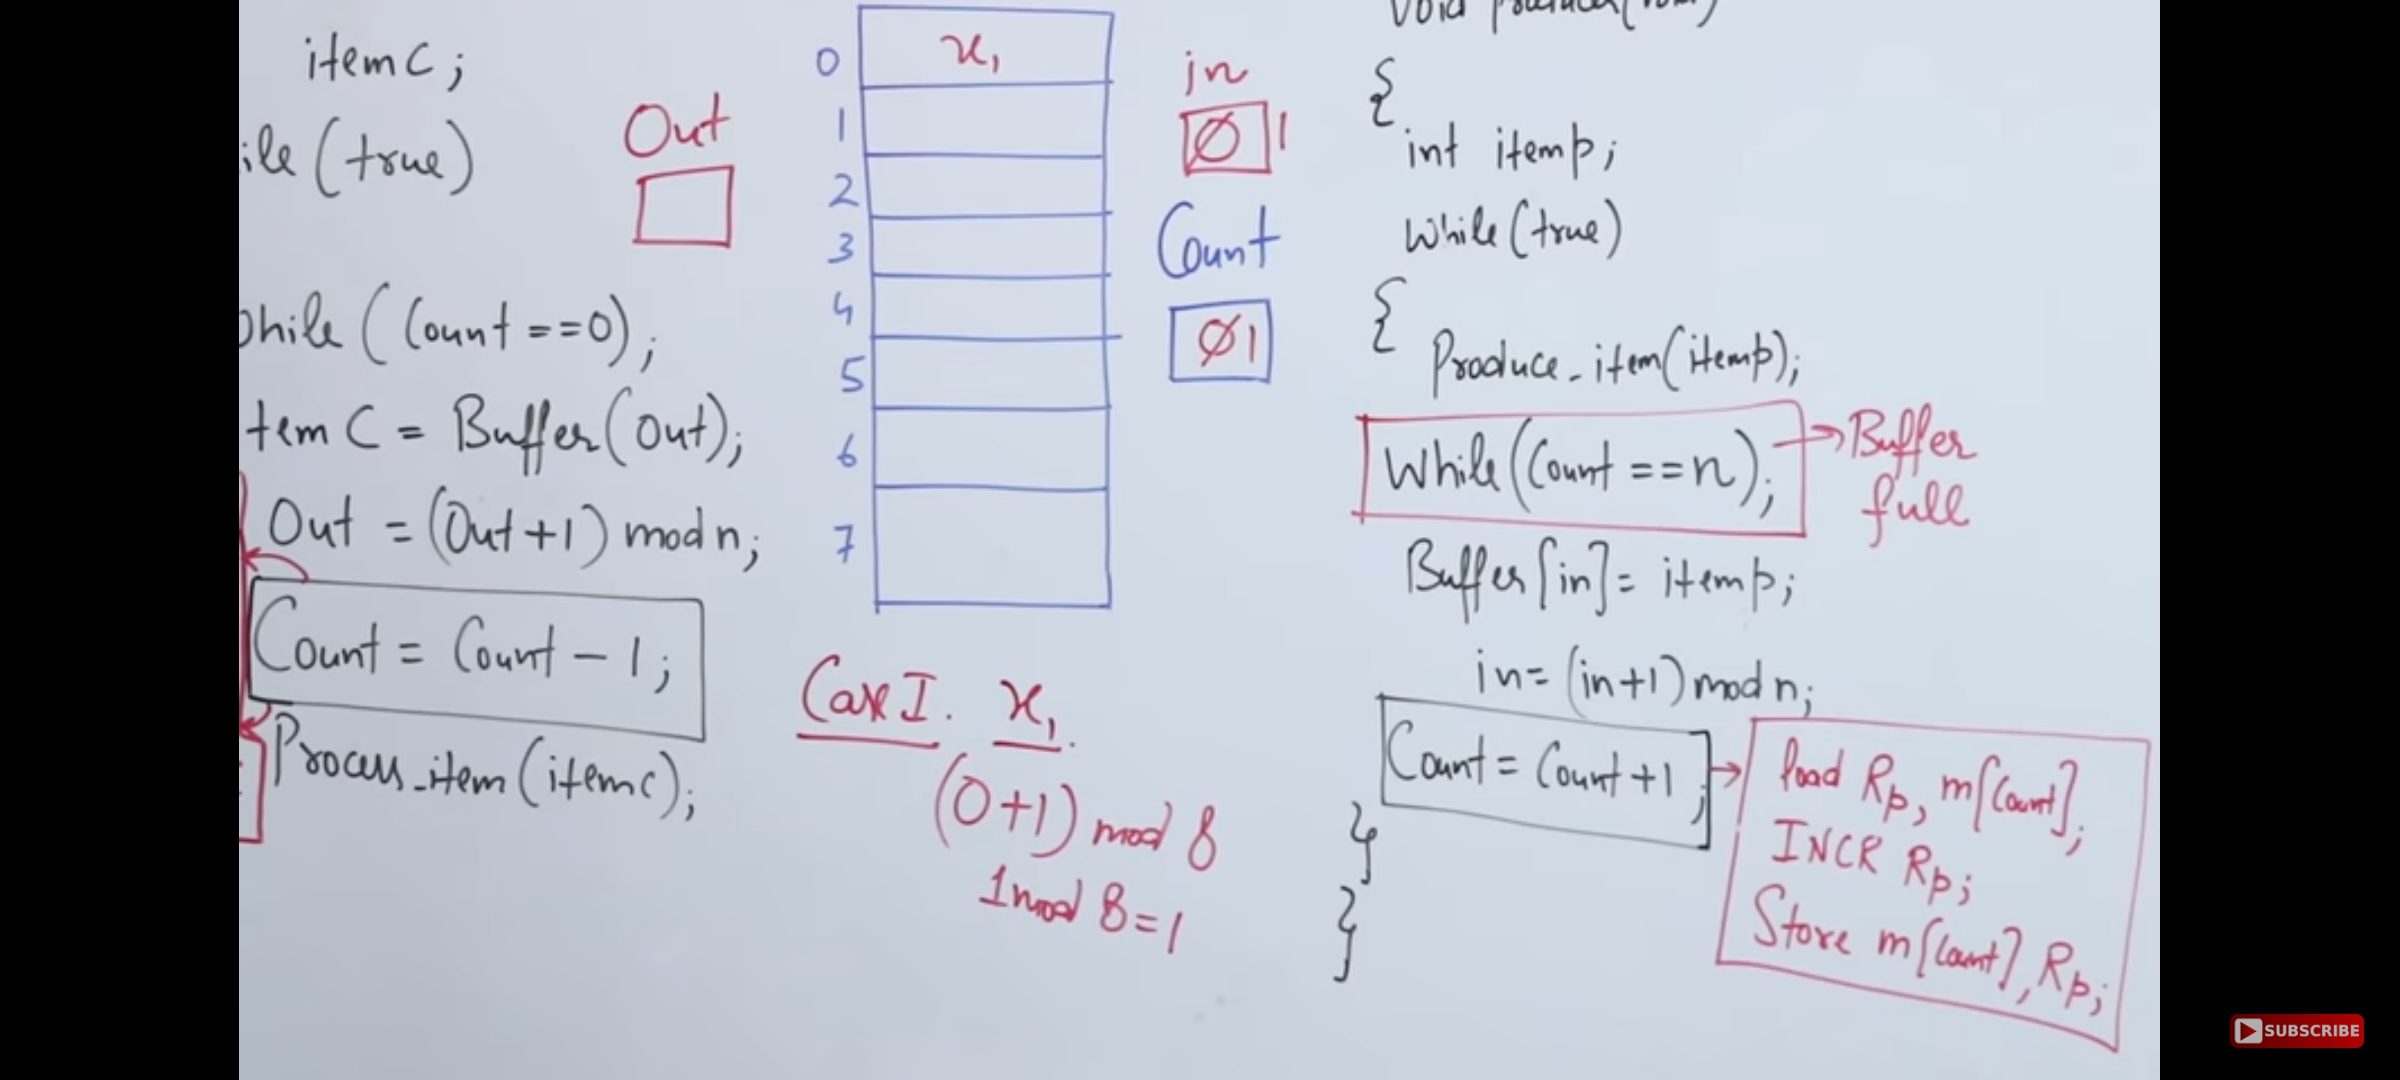 itemc;
ile (true)
hile (Count ==0);
tem C = Buffer(Out);
Out = (Out+1) mod n;
Count = Count - 1;
Process_item(itemc);
Out
0
x₁
1
2
3
4
5
6
7
in
0 1
Count
0 1
Case I. x₁.
(0+1) mod 8
1 mod 8=1
{
int itemp;
While(true)
{
Produce_item(itemp);
While(Count ==n);
Buffer
full
Buffer[in]= itemp;
in= (in+1) mod n;
Count = Count+1;
}
}
load Rp, m[Count];
INCR Rp;
Store m[Count], Rp;
SUBSCRIBE